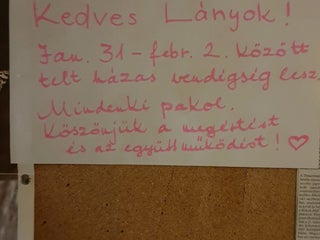 Kedves Lányok!
Jan. 31 - febr. 2. között
telt házas vendégség lesz.
Mindenki pakol.
Köszönjük a megértést
és az együttműködést! ♡